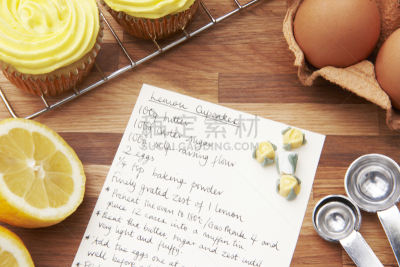 Lemon Cupcakes
110g butter
110g caster sugar
110g self raising flour
2 eggs
½ tsp baking powder
Finely grated zest of 1 lemon
* Preheat the oven to 180°c/Gas mark 4 and
place 12 cases into a muffin tin
* Beat the butter sugar and zest until
very light and fluffy
* Add the eggs one at
well before